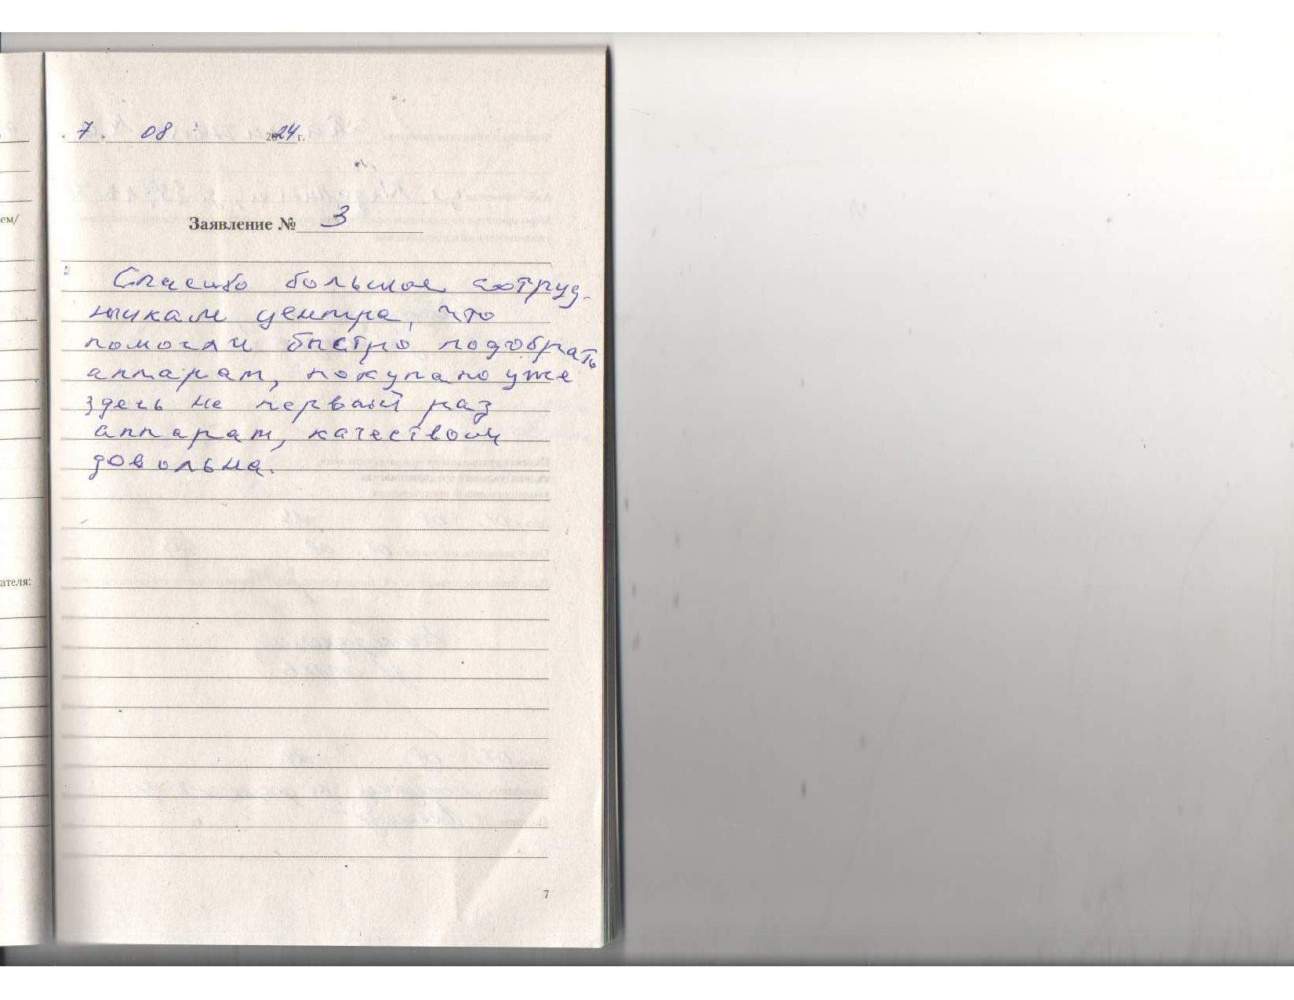 7. 08 2024 г.
Заявление № 3
Спасибо большое сотруд-
никам центра, что
помогли быстро подобрать
аппарат, покупаю уже
здесь не первый раз
аппарат, качеством
довольна.
ем/
ателя:
7